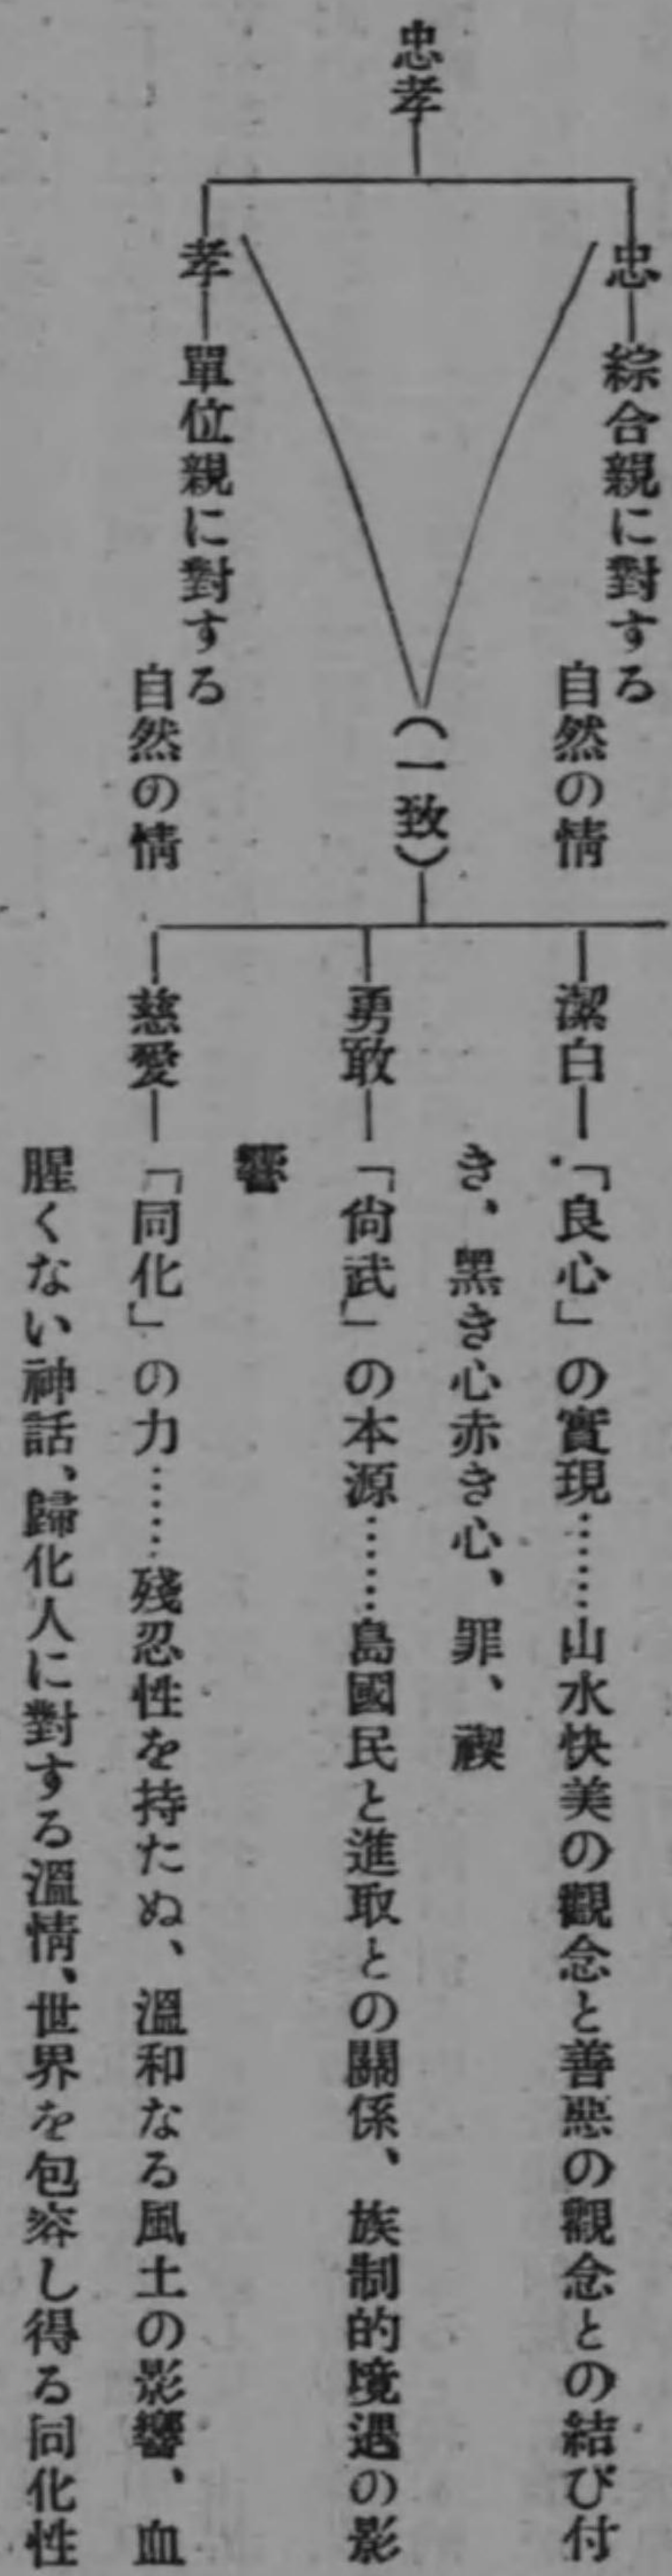 忠孝
忠
綜合親に對する
自然の情
孝
單位親に對する
自然の情
(一致)
潔白
「良心」の實現……山水快美の觀念と善惡の觀念との結び付
き、黑き心赤き心、罪、禊
勇敢
「尙武」の本源……島國民と進取との關係、族制的境遇の影
響
慈愛
「同化」の力……殘忍性を持たぬ、溫和なる風土の影響、血
腥くない神話、歸化人に對する溫情、世界を包容し得る同化性